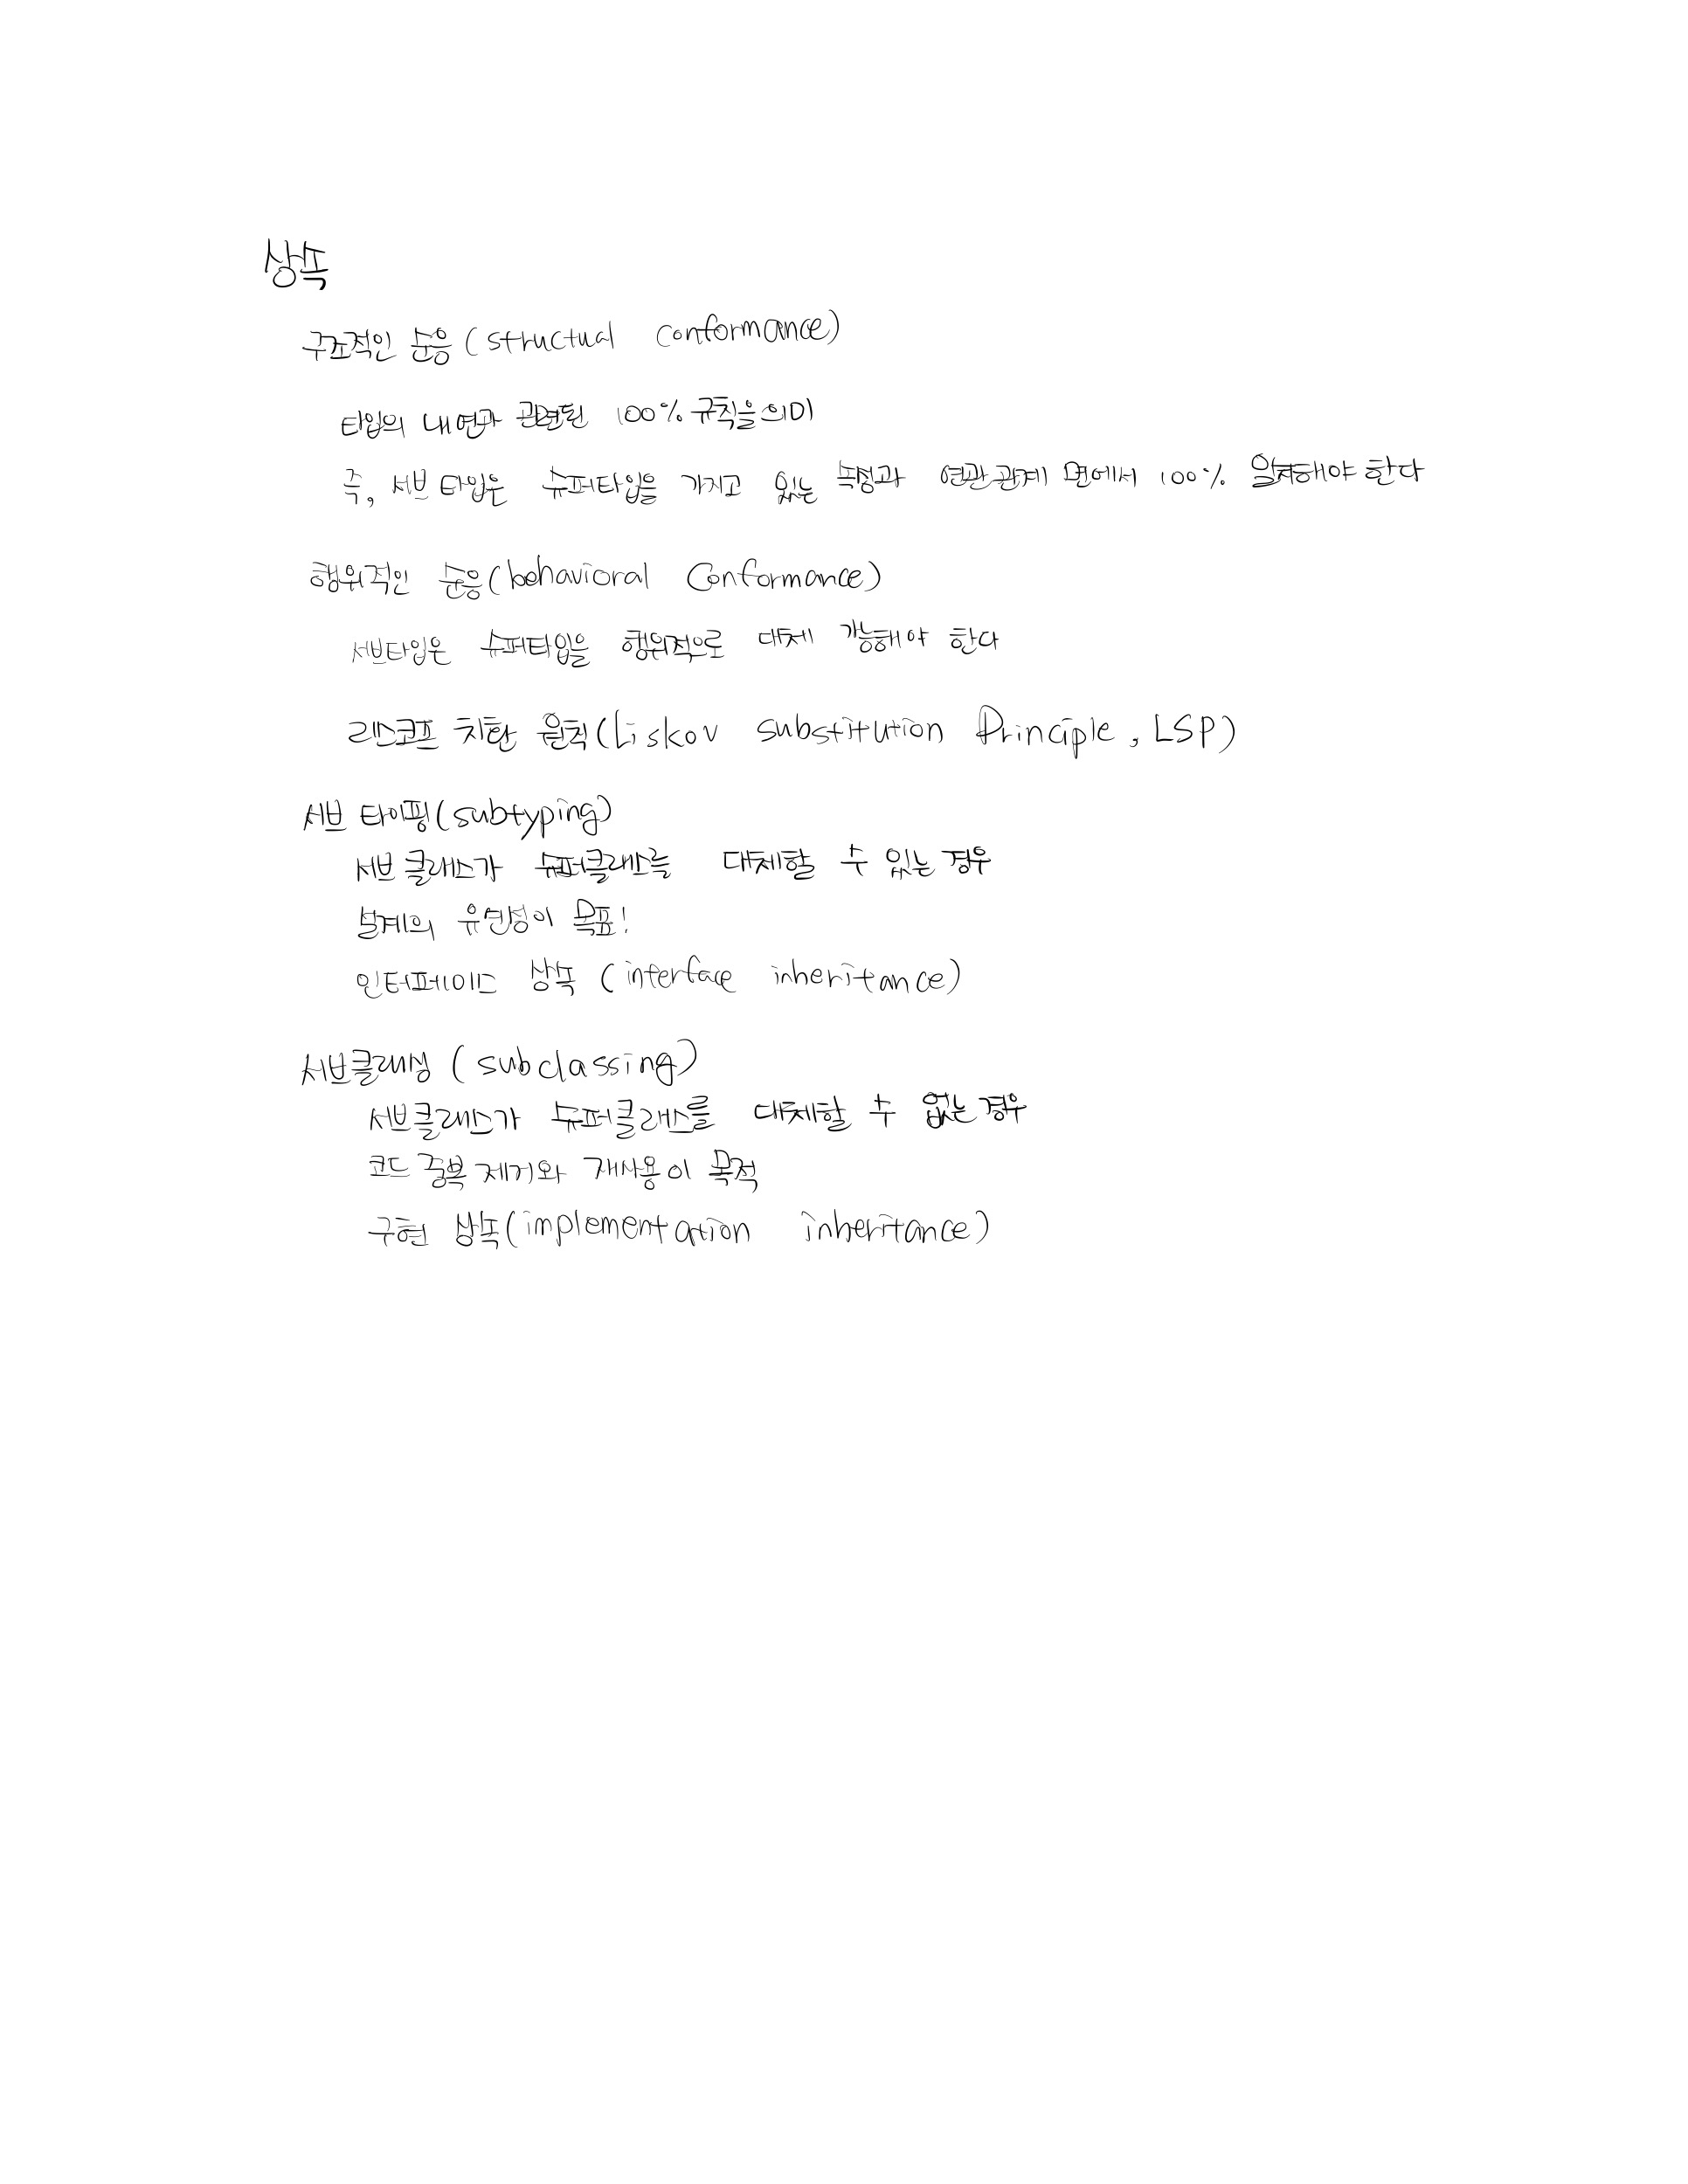 상속
구조적인 순응(structual conformance)
타입의 내연과 관련된 100% 규칙을 의미
즉, 서브타입은 슈퍼타입을 가지고 있는 속성과 연관관계 면에서 100% 일치해야 한다
행위적인 순응(behavioral Conformance)
서브타입은 슈퍼타입을 행위적으로 대체 가능해야 한다
리스코프 치환 원칙(Liskov substitution Principle, LSP)
서브 타이핑(subtyping)
서브 클래스가 슈퍼클래스를 대체할 수 있는 경우
설계의 유연성이 목표!
인터페이스 상속 (interface inheritance)
서브클래싱 (subclassing)
서브클래스가 슈퍼클래스를 대체할 수 없는 경우
코드 중복 제거와 재사용이 목적
구현 상속(implementation inheritance)